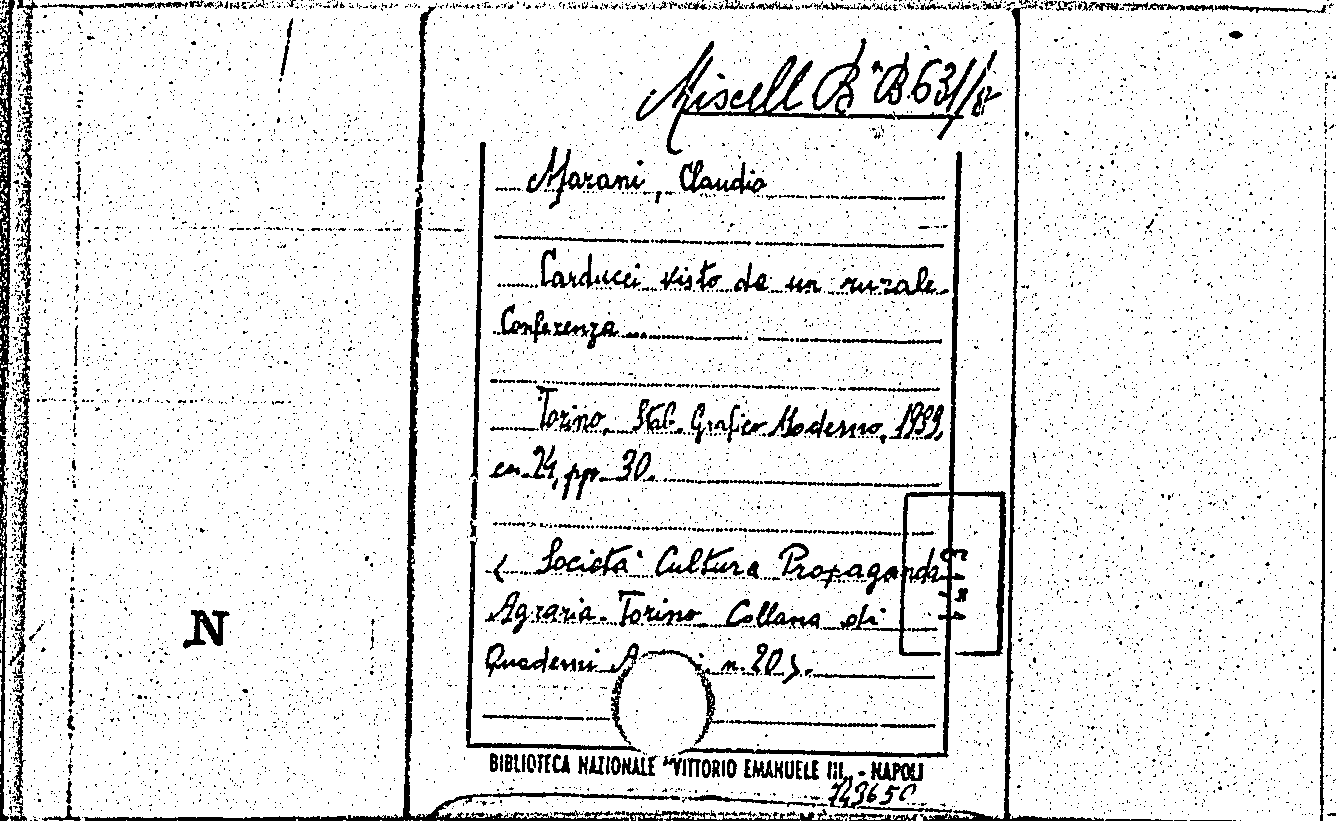 Miscell B "B 631/8
Marani, Claudio
Carducci visto da un rurale.
Conferenza ...
Torino, Stab. Grafico Moderno, 1939,
cm. 24, pp. 30.
( Società Cultura Propaganda
Agraria. Torino. Collana di
Quaderni n. 20 ).
N
BIBLIOTECA NAZIONALE "VITTORIO EMANUELE III„ - NAPOLI